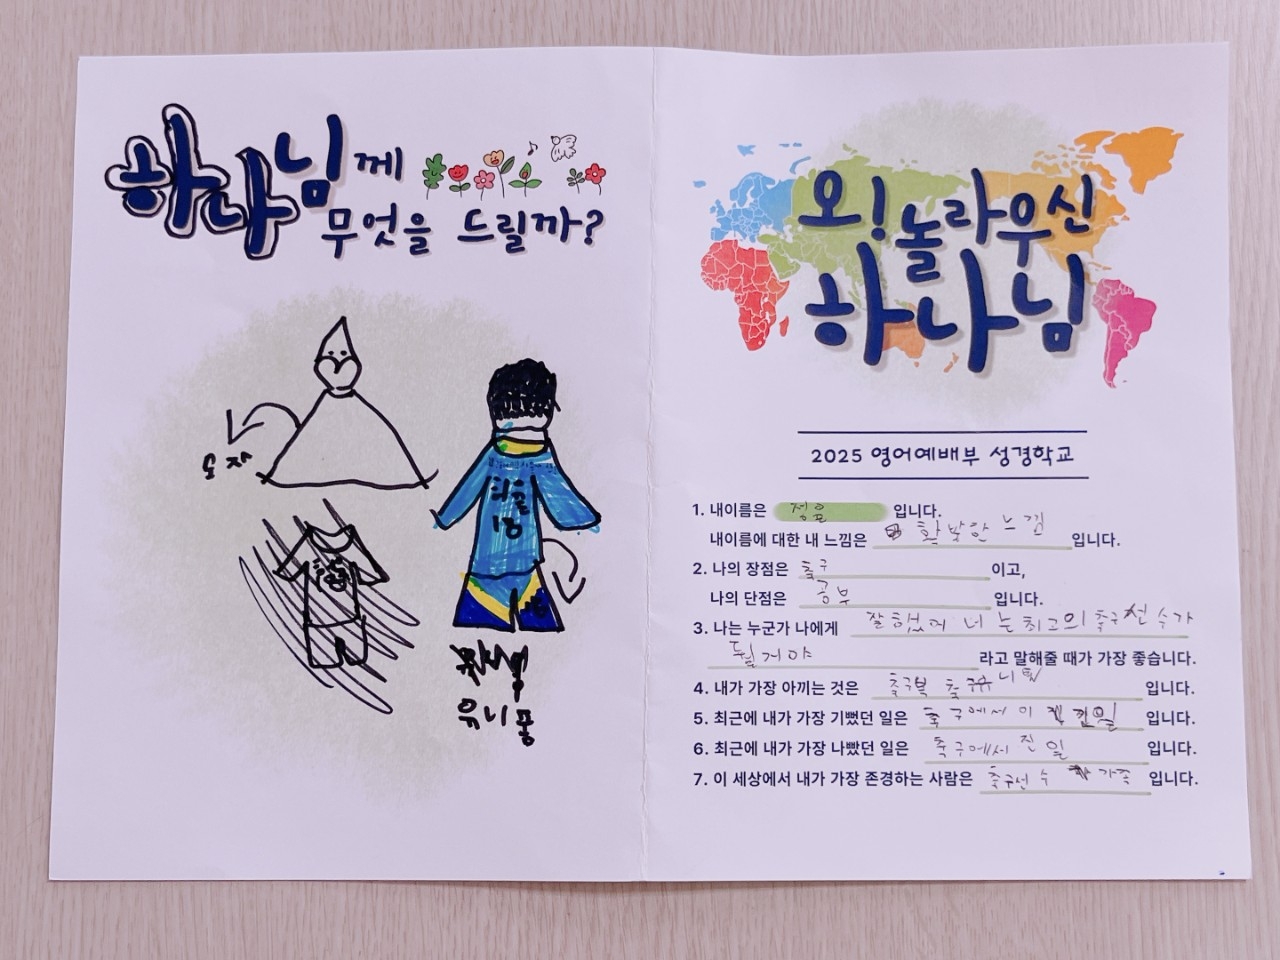 하나님께
무엇을 드릴까?
모자
유니폼
오! 놀라우신
하나님
2025 영어예배부 성경학교
1. 내이름은 정율 입니다.
내이름에 대한 내 느낌은 활발한 느낌 입니다.
2. 나의 장점은 축구 이고,
나의 단점은 공부 입니다.
3. 나는 누군가 나에게 잘했어 너는 최고의 축구선수가
될거야 라고 말해줄 때가 가장 좋습니다.
4. 내가 가장 아끼는 것은 축구복 축구 유니폼 입니다.
5. 최근에 내가 가장 기뻤던 일은 축구에서 이긴일 입니다.
6. 최근에 내가 가장 나빴던 일은 축구에서 진 일 입니다.
7. 이 세상에서 내가 가장 존경하는 사람은 축구선수 가족 입니다.